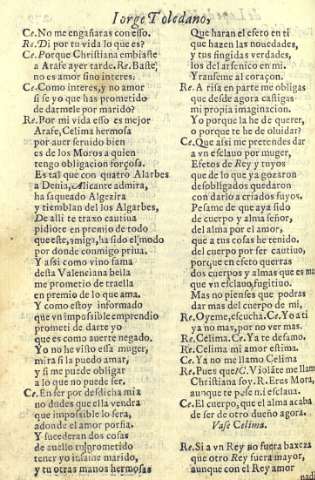 Iorge Toledano,
Ce. No me engañaras con esso.
Re. Di por tu vida lo que es?
Ce. Porque Christiana embiaste
a Arafe ayer tarde. Re. Baste,
no es amor sino interes.
Ce. Como interes, y no amor
si se yo que has prometido
de darmele por marido?
Re. Por mi vida esso es mejor
Arafe, Celima hermosa
por auer seruido bien
es de los Moros a quien
tengo obligacion forçosa.
Es tal que con quatro Alarbes
a Denia, Alicante admira,
ha saqueado Algezira
y tiemblan del los Algarbes,
De alli te traxo cautiua
pidiore en premio de todo
que este, , ha sido el modo
por donde conmigo priua.
Y assi como vino fama
desta Valenciana bella
me prometio de traella
en premio de lo que ama.
Y como estoy informado
que vn impossible emprendio
prometi de darte yo
que es como auerte negado.
Yo no he visto essa muger,
mira si la puedo amar,
y si me puede obligar
a lo que no puede ser.
Ce. En ser por desdicha mia
no dudes que ella vendra
que impossible lo sera,
adonde el amor porfia.
Y sucederan dos cosas
de auello prometido
tener yo infame marido,
y tu otras manos hermosas
Que haran el efeto en ti
que hazen las nouedades,
y tus fingidas verdades,
los del arsenico en mi.
Yranseme al coraçon.
Re. A risa en parte me obligas
que desde agora castigas
mi propia imaginacion.
Yo porque la he de querer,
o porque te he de oluidar?
Ce. Que assi me pretendes dar
a vn esclauo por muger,
Efetos de Rey y tuyos
que de lo que ya gozaron
desobligados quedaron
con darlo a criados suyos.
Pesame de que aya sido
de cuerpo y alma señor,
del alma por el amor,
que a tus cosas he tenido.
del cuerpo por ser cautiuo,
porque en efeto querras
dos cuerpos y almas que es mas
que vn esclauo fugitiuo.
Mas no pienses que podras
dar mas del cuerpo de mi,
Re. Oyeme, escucha. Ce. Yo a ti
ya no mas, por no ver mas.
Re. Celima. Ce. Ya te desamo.
Re. Celima mi amor estima.
Ce. Ya no me llamo Celima
Re. Pues que? C. Violãte me llamo
Christiana soy. R. Eres Mora,
aunque te pese mi esclaua.
Ce. El cuerpo, que el alma acaba
de ser de otro dueño agora.
Vase Celima.
Re. Si a vn Rey no fuera baxeza
que otro Rey fuera mayor,
aunque con el Rey amor